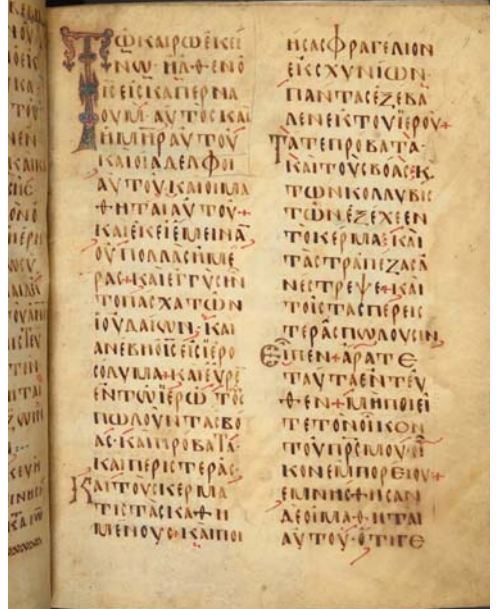 Τῶ καιρῶ ἐκεί
νω· ηλθεν ὁ
ις εις καπερνα
ουμ· αυτος και
ἡ μηρ αυτου
και οι αδελφοι
αυτου· και οι μα
θηται αυτου+
και ἐκει ἐμεινα
ου πολλας ημε
ρας+ και εγγυς ην
το πασχα των
ιουδαιων· και
ανεβη ο ις εις ιερο
σολυμα+ και ευρε
εν τω ιερω τους
πωλουντας βο
ας· και προβατα·
και περιστερας·
Και τους κερμα
τιστας καθη
μενους+ και ποι
ησας φραγελιον
εκ σχυνιων
παντας εξεβα
λεν εκ του ιερου+
Τα τε προβατα·
και τους βοας· κ
των κολλυβισ
των εξεχεεν
το κερμα· και
τας τραπεζας α
νεστρεψε+ και
τοις τας περισ
τερας πωλουσιν
Ειπεν+ αρατε
ταυτα εντευ
θεν+ μη ποιει
τε τον οικον
του πρς μου· οι
κον εμποριου+
εμνησθησαν
δε οι μαθηται
αυτου· οτι γε